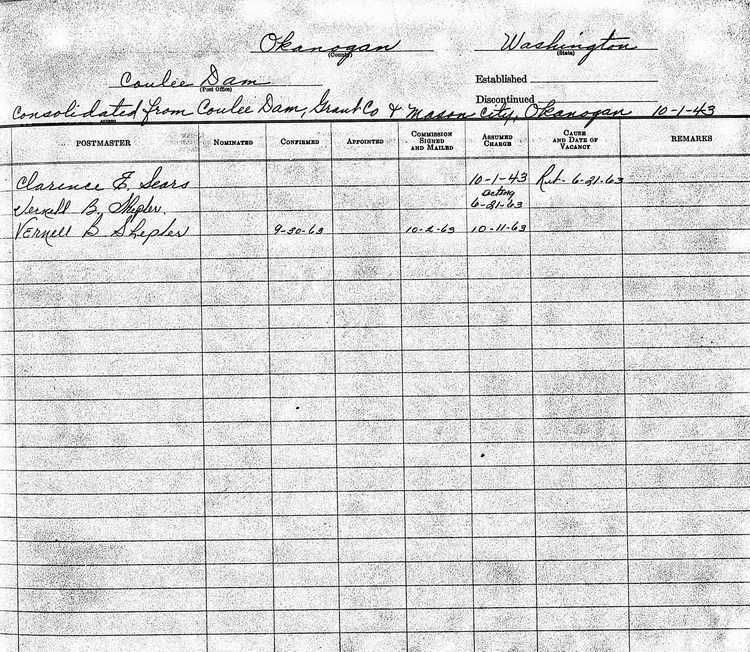 Okanogan Washington
(County) (State)
Coulee Dam Established
(Post Office)
Discontinued
Consolidated from Coulee Dam, Grant Co & Mason City, Okanogan 10-1-43
POSTMASTER NOMINATED CONFIRMED APPOINTED COMMISSION SIGNED AND MAILED ASSUMED CHARGE CAUSE AND DATE OF VACANCY REMARKS
Clarence E. Sears 10-1-43 Ret. 6-21-63
Vernell B. Shepler. Acting 6-21-63
Vernell B Shepler 9-30-63 10-2-63 10-11-63